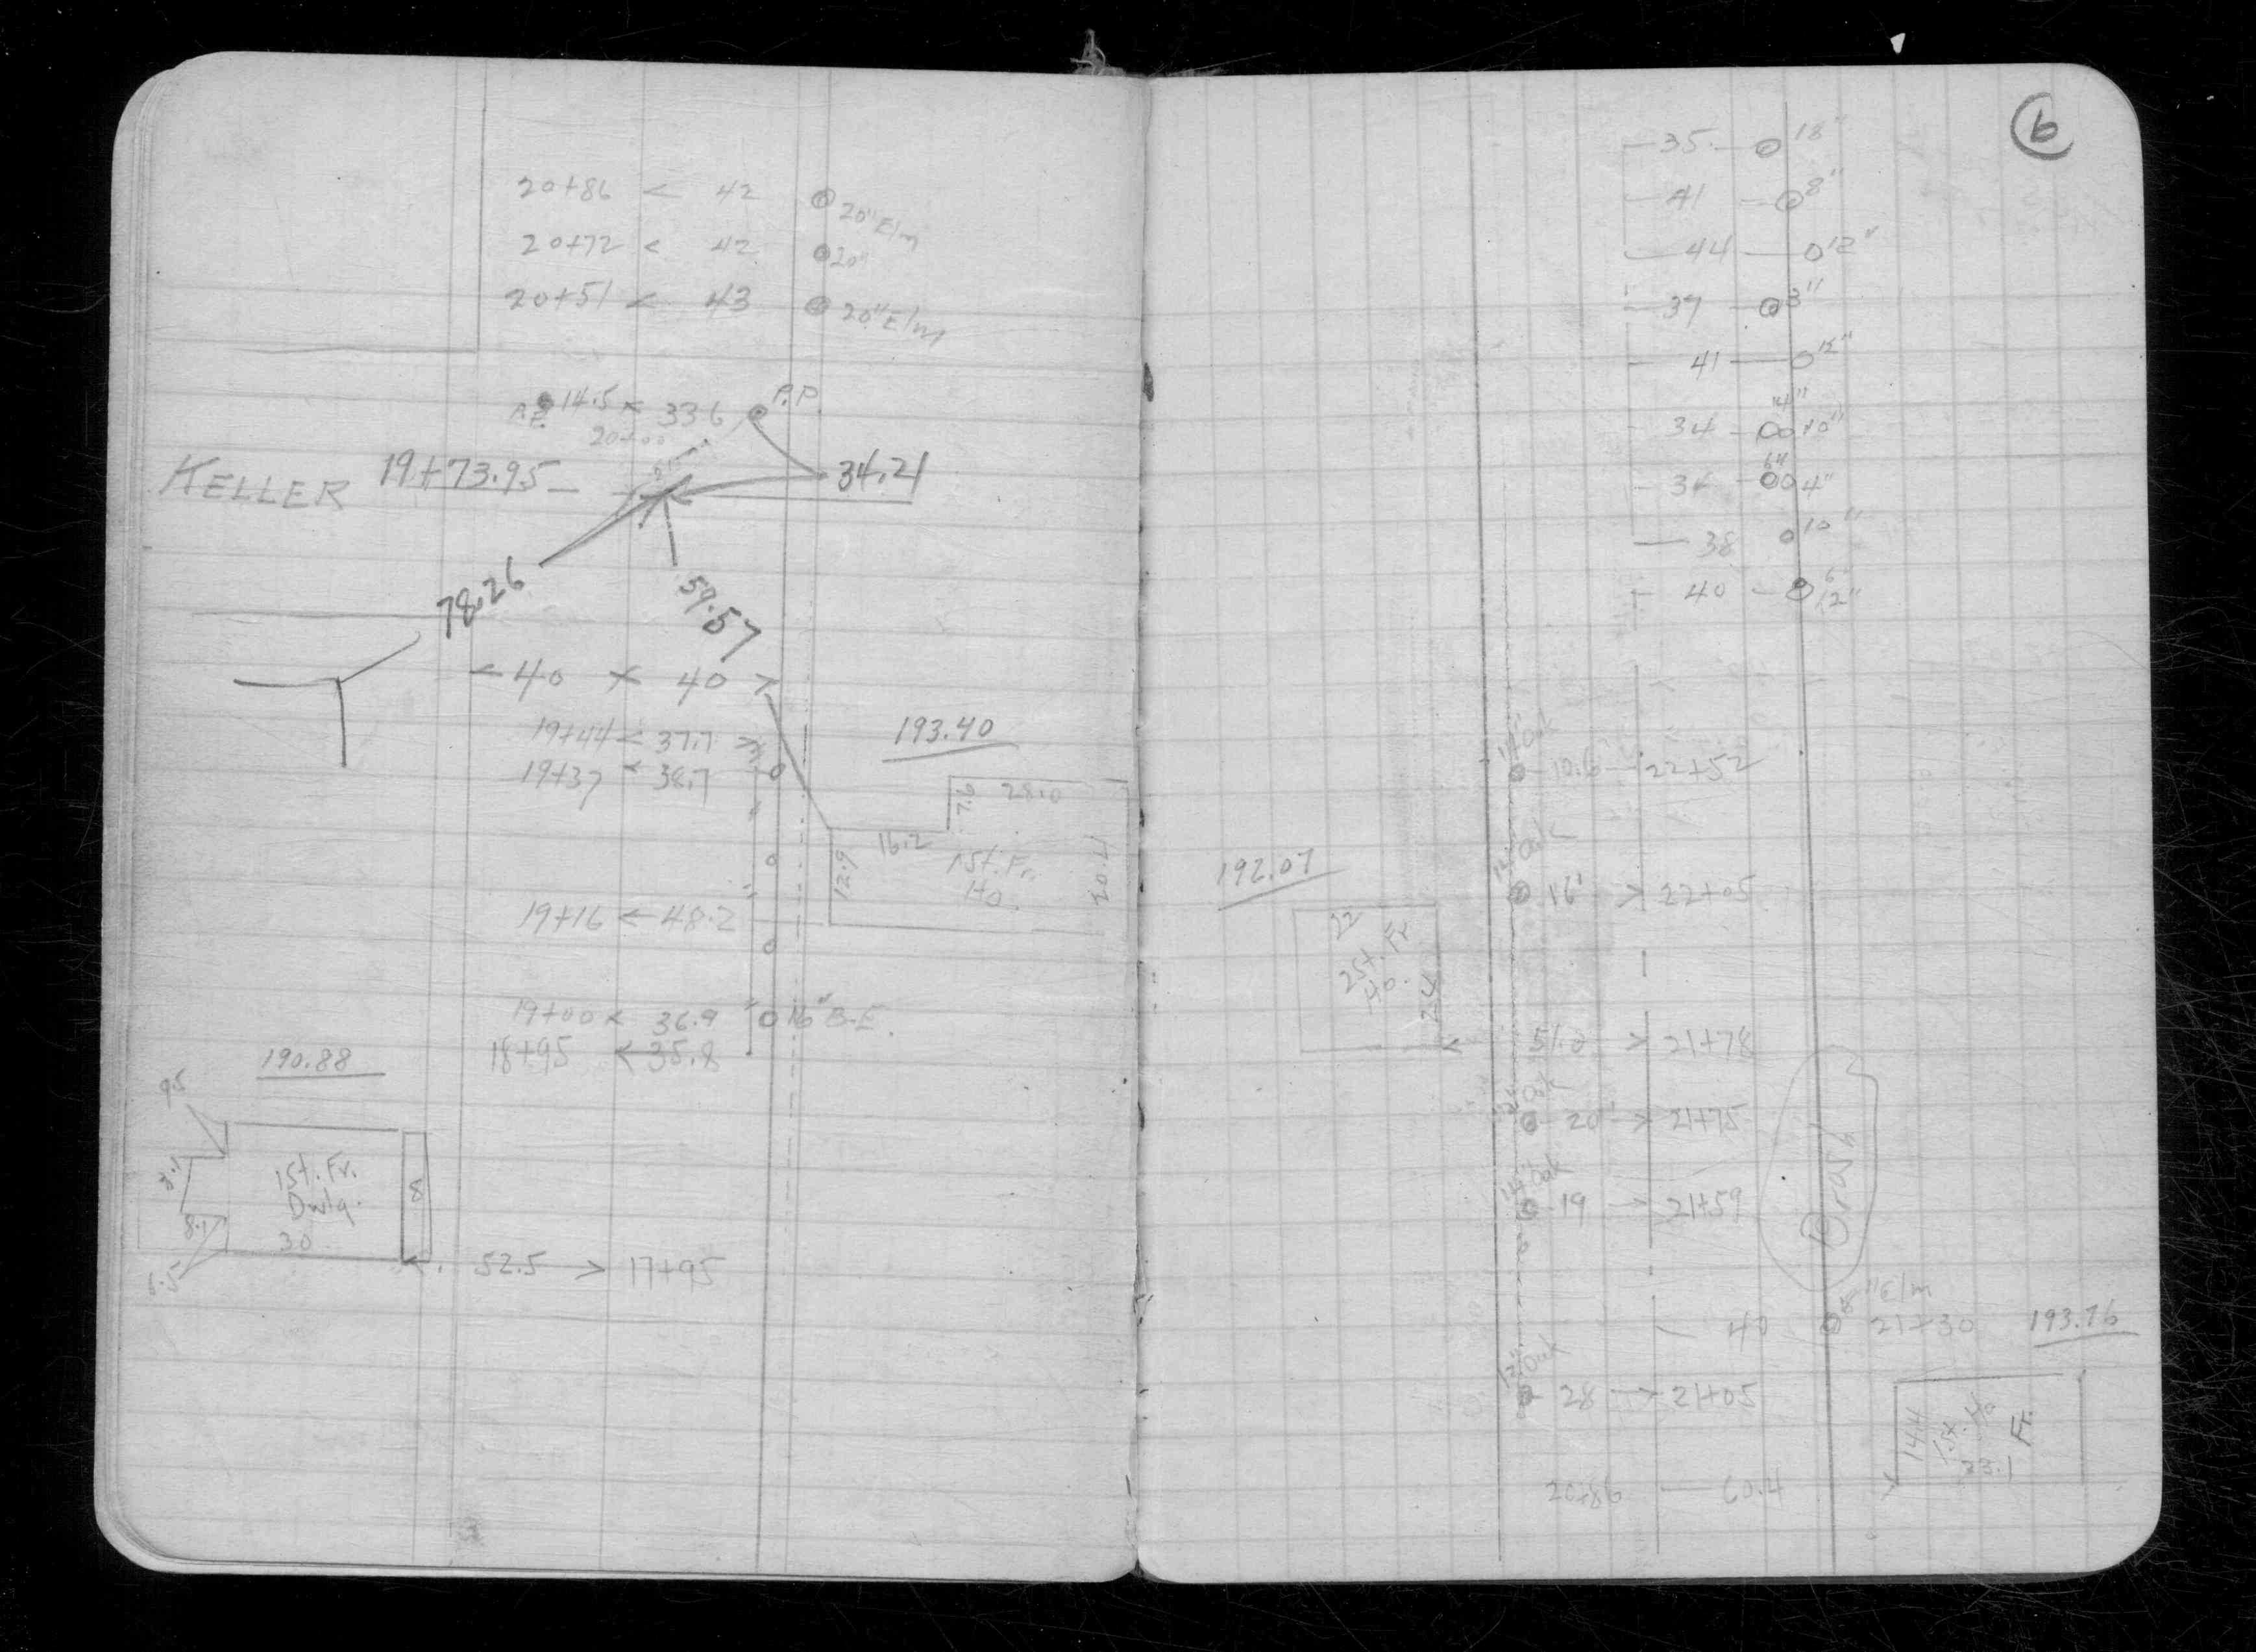 20+86 < 42 20" Elm
20+72 < 42 20"
20+51 < 43 20" Elm
14.5 33.6 P.P.
20+00
KELLER 19+73.95 34.21
78.26
59.57
40 40
19+44 < 37.7
193.40
19+37 < 38.7
7.6 28.0
16.2
12.9
1 St. Fr.
Ho.
19+16 < 48.2
19+00 < 36.9 16" B-E.
18+95 < 35.8
190.88
9.5
1 St. Fr.
Dwlg.
8
8.1
30
6.5
52.5 > 17+95
6
35 18"
41 8"
44 12"
37 8"
41 12"
14"
34 10"
6"
36 4"
38 10"
40 6"
12"
14" Oak
10.6 22+52
12" Oak
192.07
16' > 22+05
22
2 St. Fr
Ho.
24
51.0 > 21+78
Oak
20' > 21+75
Brush
14" Oak
19 > 21+59
" Elm
40 21+30
193.76
12" Oak
28 > 21+05
14.4
1 St. Ho
Fr.
23.1
20+86 60.4